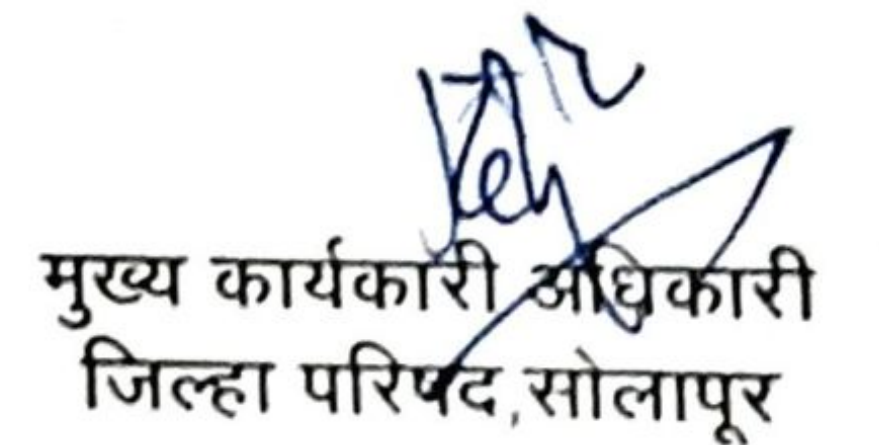 मुख्य कार्यकारी अधिकारी
जिल्हा परिषद,सोलापूर